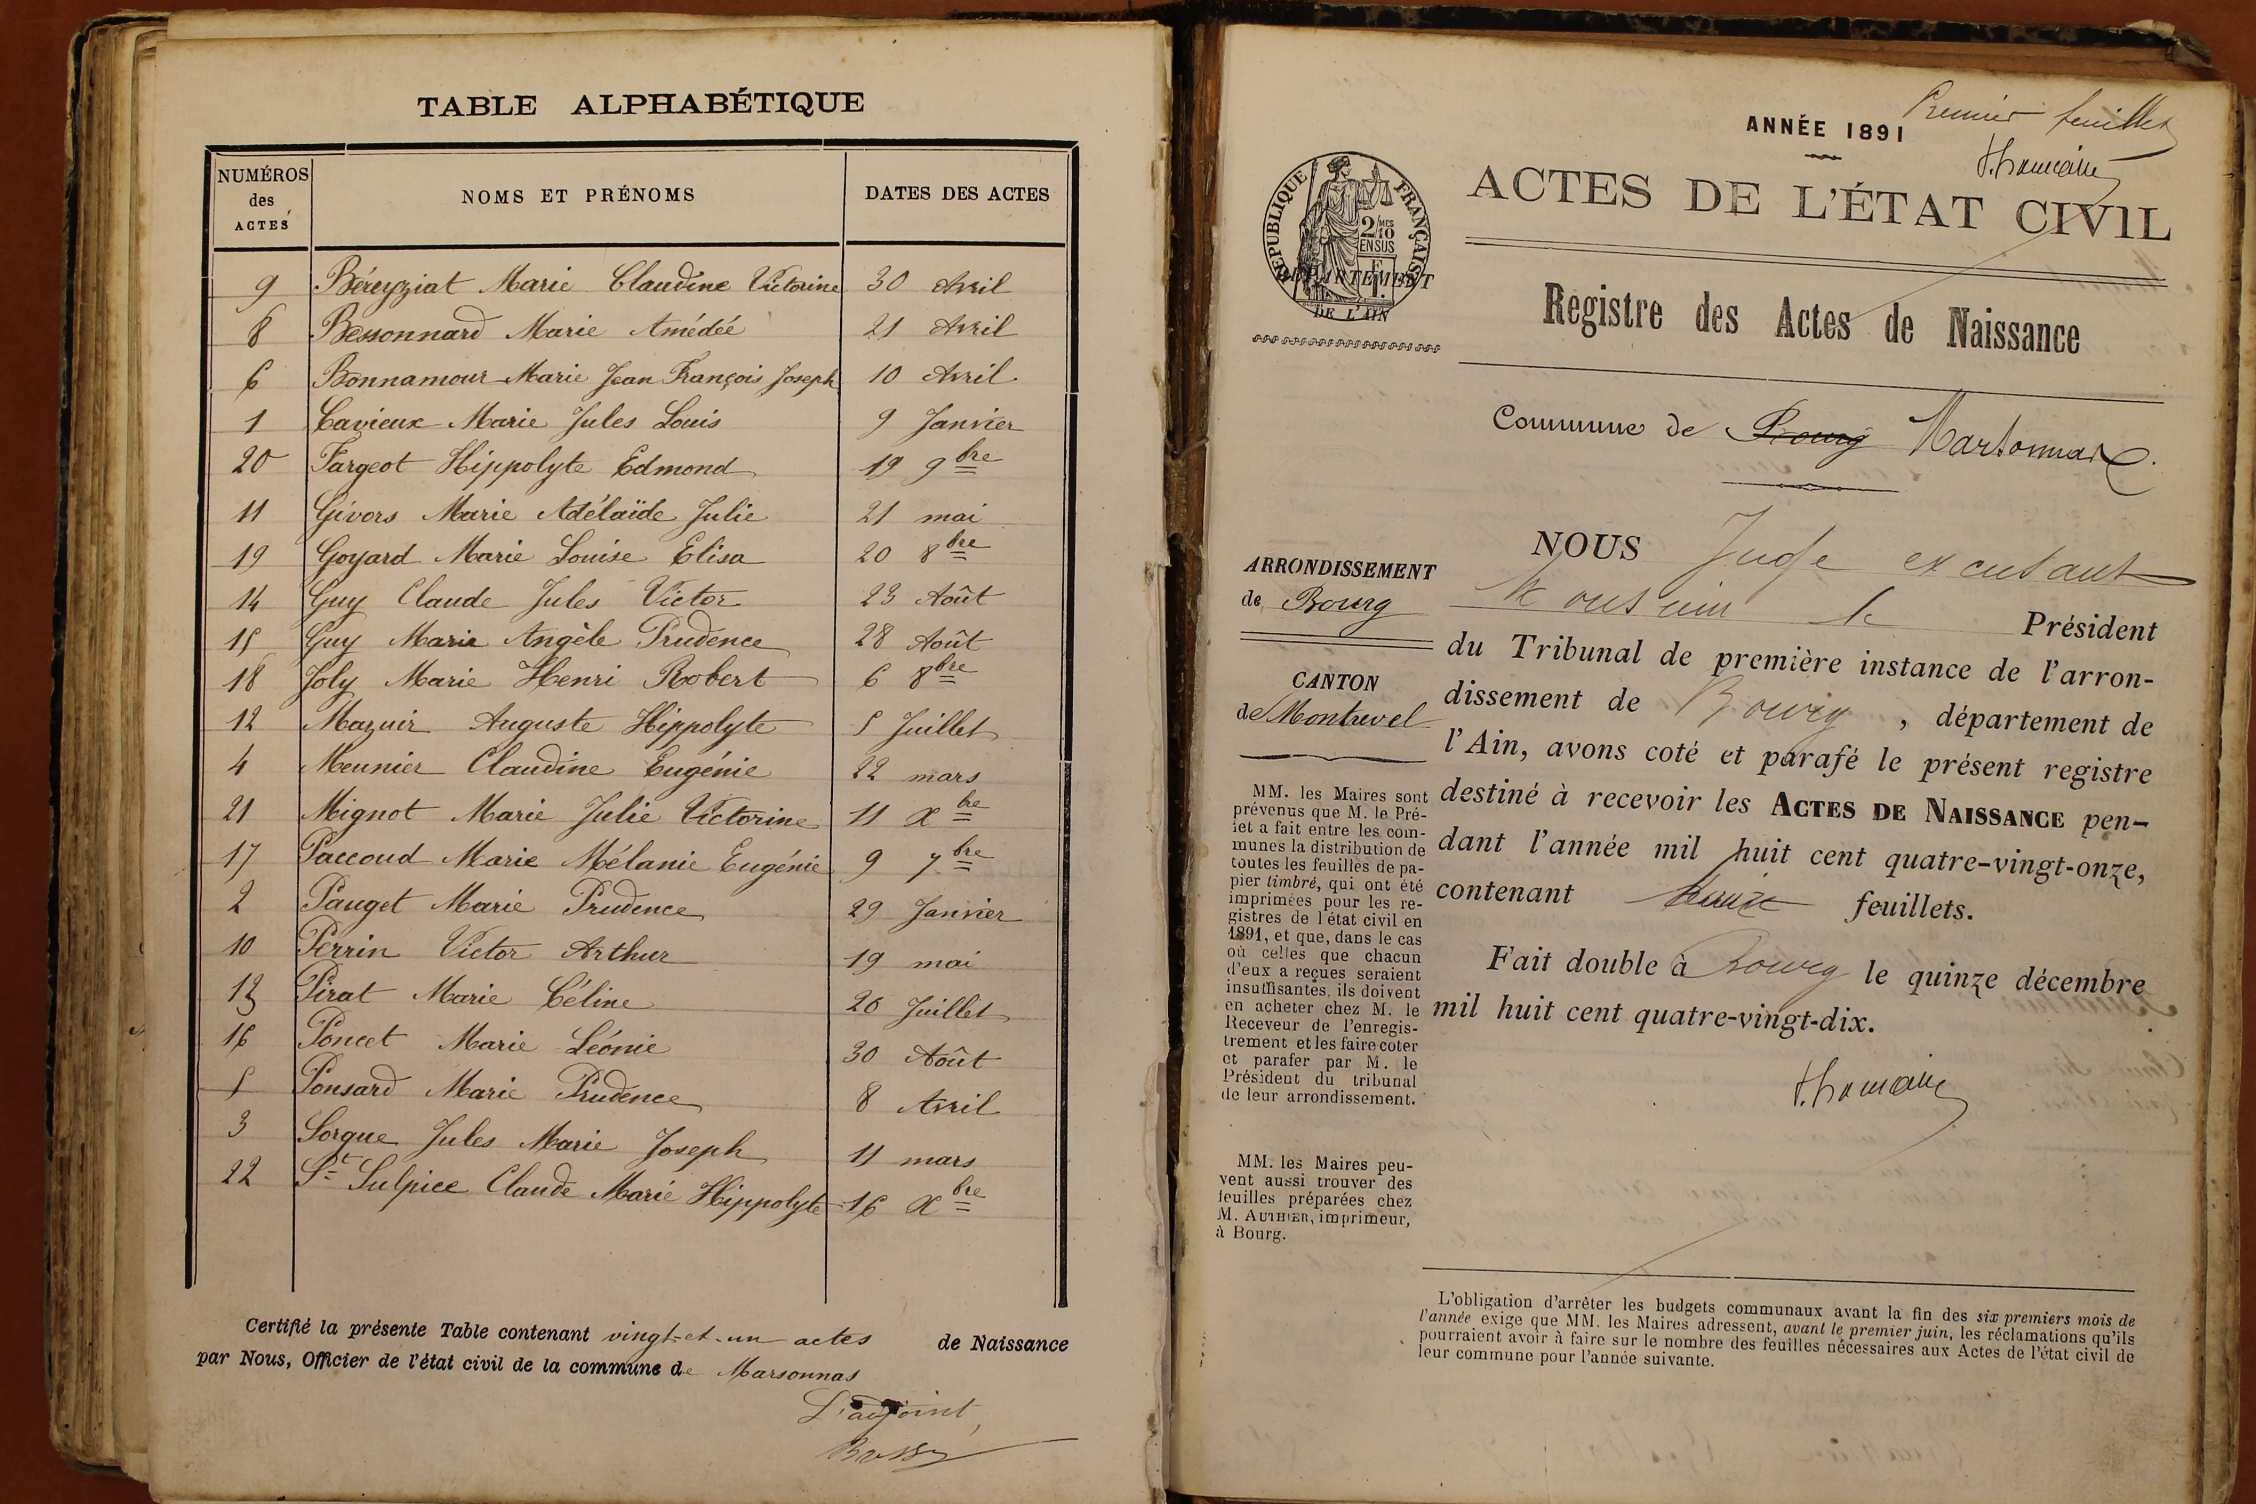 TABLE ALPHABÉTIQUE
NUMÉROS des ACTES
NOMS ET PRÉNOMS
DATES DES ACTES
9 Béreyziat Marie Claudine Victorine 30 Avril
8 Bessonnard Marie Amédée 21 Avril
6 Bonnamour Marie Jean François Joseph 10 Avril
1 Cavieux Marie Jules Louis 9 Janvier
20 Fargeot Hippolyte Edmond 19 9bre
11 Givors Marie Adélaïde Julie 21 mai
19 Goyard Marie Louise Elisa 20 8bre
14 Guy Claude Jules Victor 23 Août
15 Guy Marie Angèle Prudence 28 Août
18 Joly Marie Henri Robert 6 8bre
12 Mazuir Auguste Hippolyte 5 Juillet
4 Meunier Claudine Eugénie 22 mars
21 Mignot Marie Julie Victorine 11 Xbre
17 Paccoud Marie Mélanie Eugénie 9 7bre
2 Pauget Marie Prudence 29 Janvier
10 Perrin Victor Arthur 19 mai
13 Pirat Marie Céline 20 Juillet
16 Poncet Marie Léonie 30 Août
5 Ponsard Marie Prudence 8 Avril
3 Sorgue Jules Marie Joseph 11 mars
22 St Sulpice Claude Marie Hippolyte 16 Xbre
Certifié la présente Table contenant vingt-et-un actes de Naissance
par Nous, Officier de l'état civil de la commune de Marsonnas
L'adjoint,
Premier feuillet
ANNÉE 1891
ACTES DE L'ÉTAT CIVIL
RÉPUBLIQUE FRANÇAISE
2/10 MES
EN SUS
DÉPARTEMENT
DE L'AIN
Registre des Actes de Naissance
Commune de Bourg Marsonnas
ARRONDISSEMENT
de Bourg
CANTON
de Montrevel
MM. les Maires sont
prévenus que M. le Pré-
fet a fait entre les com-
munes la distribution de
toutes les feuilles de pa-
pier timbré, qui ont été
imprimées pour les re-
gistres de l'état civil en
1891, et que, dans le cas
où celles que chacun
d'eux a reçues seraient
insuffisantes, ils doivent
en acheter chez M. le
Receveur de l'enregis-
trement et les faire coter
et parafer par M. le
Président du tribunal
de leur arrondissement.
MM. les Maires peu-
vent aussi trouver des
feuilles préparées chez
M. AUTHIER, imprimeur,
à Bourg.
NOUS Juge
le Président
du Tribunal de première instance de l'arron-
dissement de Bourg, département de
l'Ain, avons coté et parafé le présent registre
destiné à recevoir les ACTES DE NAISSANCE pen-
dant l'année mil huit cent quatre-vingt-onze,
contenant feuillets.
Fait double à Bourg le quinze décembre
mil huit cent quatre-vingt-dix.
L'obligation d'arrêter les budgets communaux avant la fin des six premiers mois de
l'année exige que MM. les Maires adressent, avant le premier juin, les réclamations qu'ils
pourraient avoir à faire sur le nombre des feuilles nécessaires aux Actes de l'état civil de
leur commune pour l'année suivante.